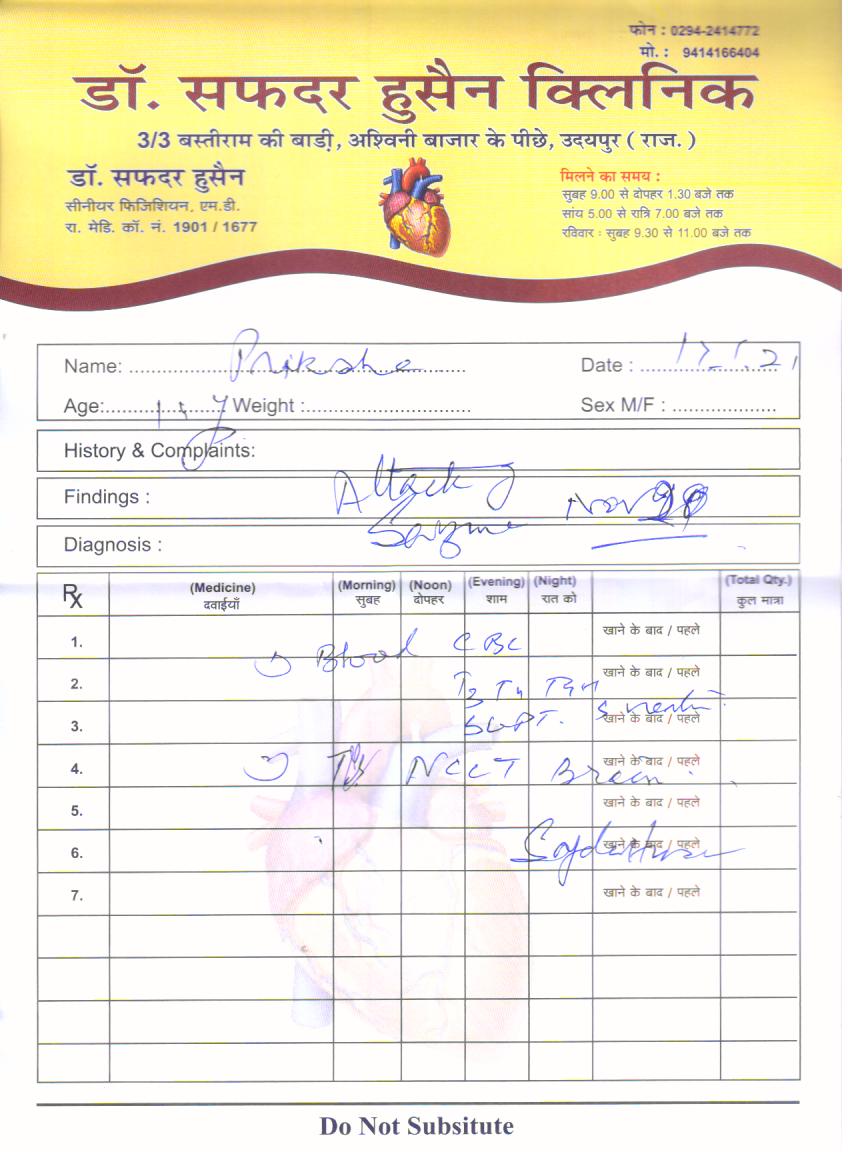 फोन : 0294-2414772
मो. : 9414166404
डॉ. सफदर हुसैन क्लिनिक
3/3 बस्तीराम की बाडी़, अश्विनी बाजार के पीछे, उदयपुर ( राज. )
डॉ. सफदर हुसैन
सीनीयर फिजिशियन, एम.डी.
रा. मेडि. कॉ. नं. 1901 / 1677
मिलने का समय :
सुबह 9.00 से दोपहर 1.30 बजे तक
सांय 5.00 से रात्रि 7.00 बजे तक
रविवार : सुबह 9.30 से 11.00 बजे तक
Name: Priksha Date :
Age: Weight : Sex M/F :
History & Complaints:
Attack
Findings :
Nov
Diagnosis :
Rx (Medicine) (Morning) (Noon) (Evening) (Night) (Total Qty.)
दवाईयाँ सुबह दोपहर शाम रात को कुल मात्रा
1. खाने के बाद / पहले
Blood CBC
2. खाने के बाद / पहले
T3 T4 TSH
3. खाने के बाद / पहले
SGPT.
4. NCCT Brain खाने के बाद / पहले
5. खाने के बाद / पहले
6. खाने के बाद / पहले
7. खाने के बाद / पहले
Do Not Subsitute